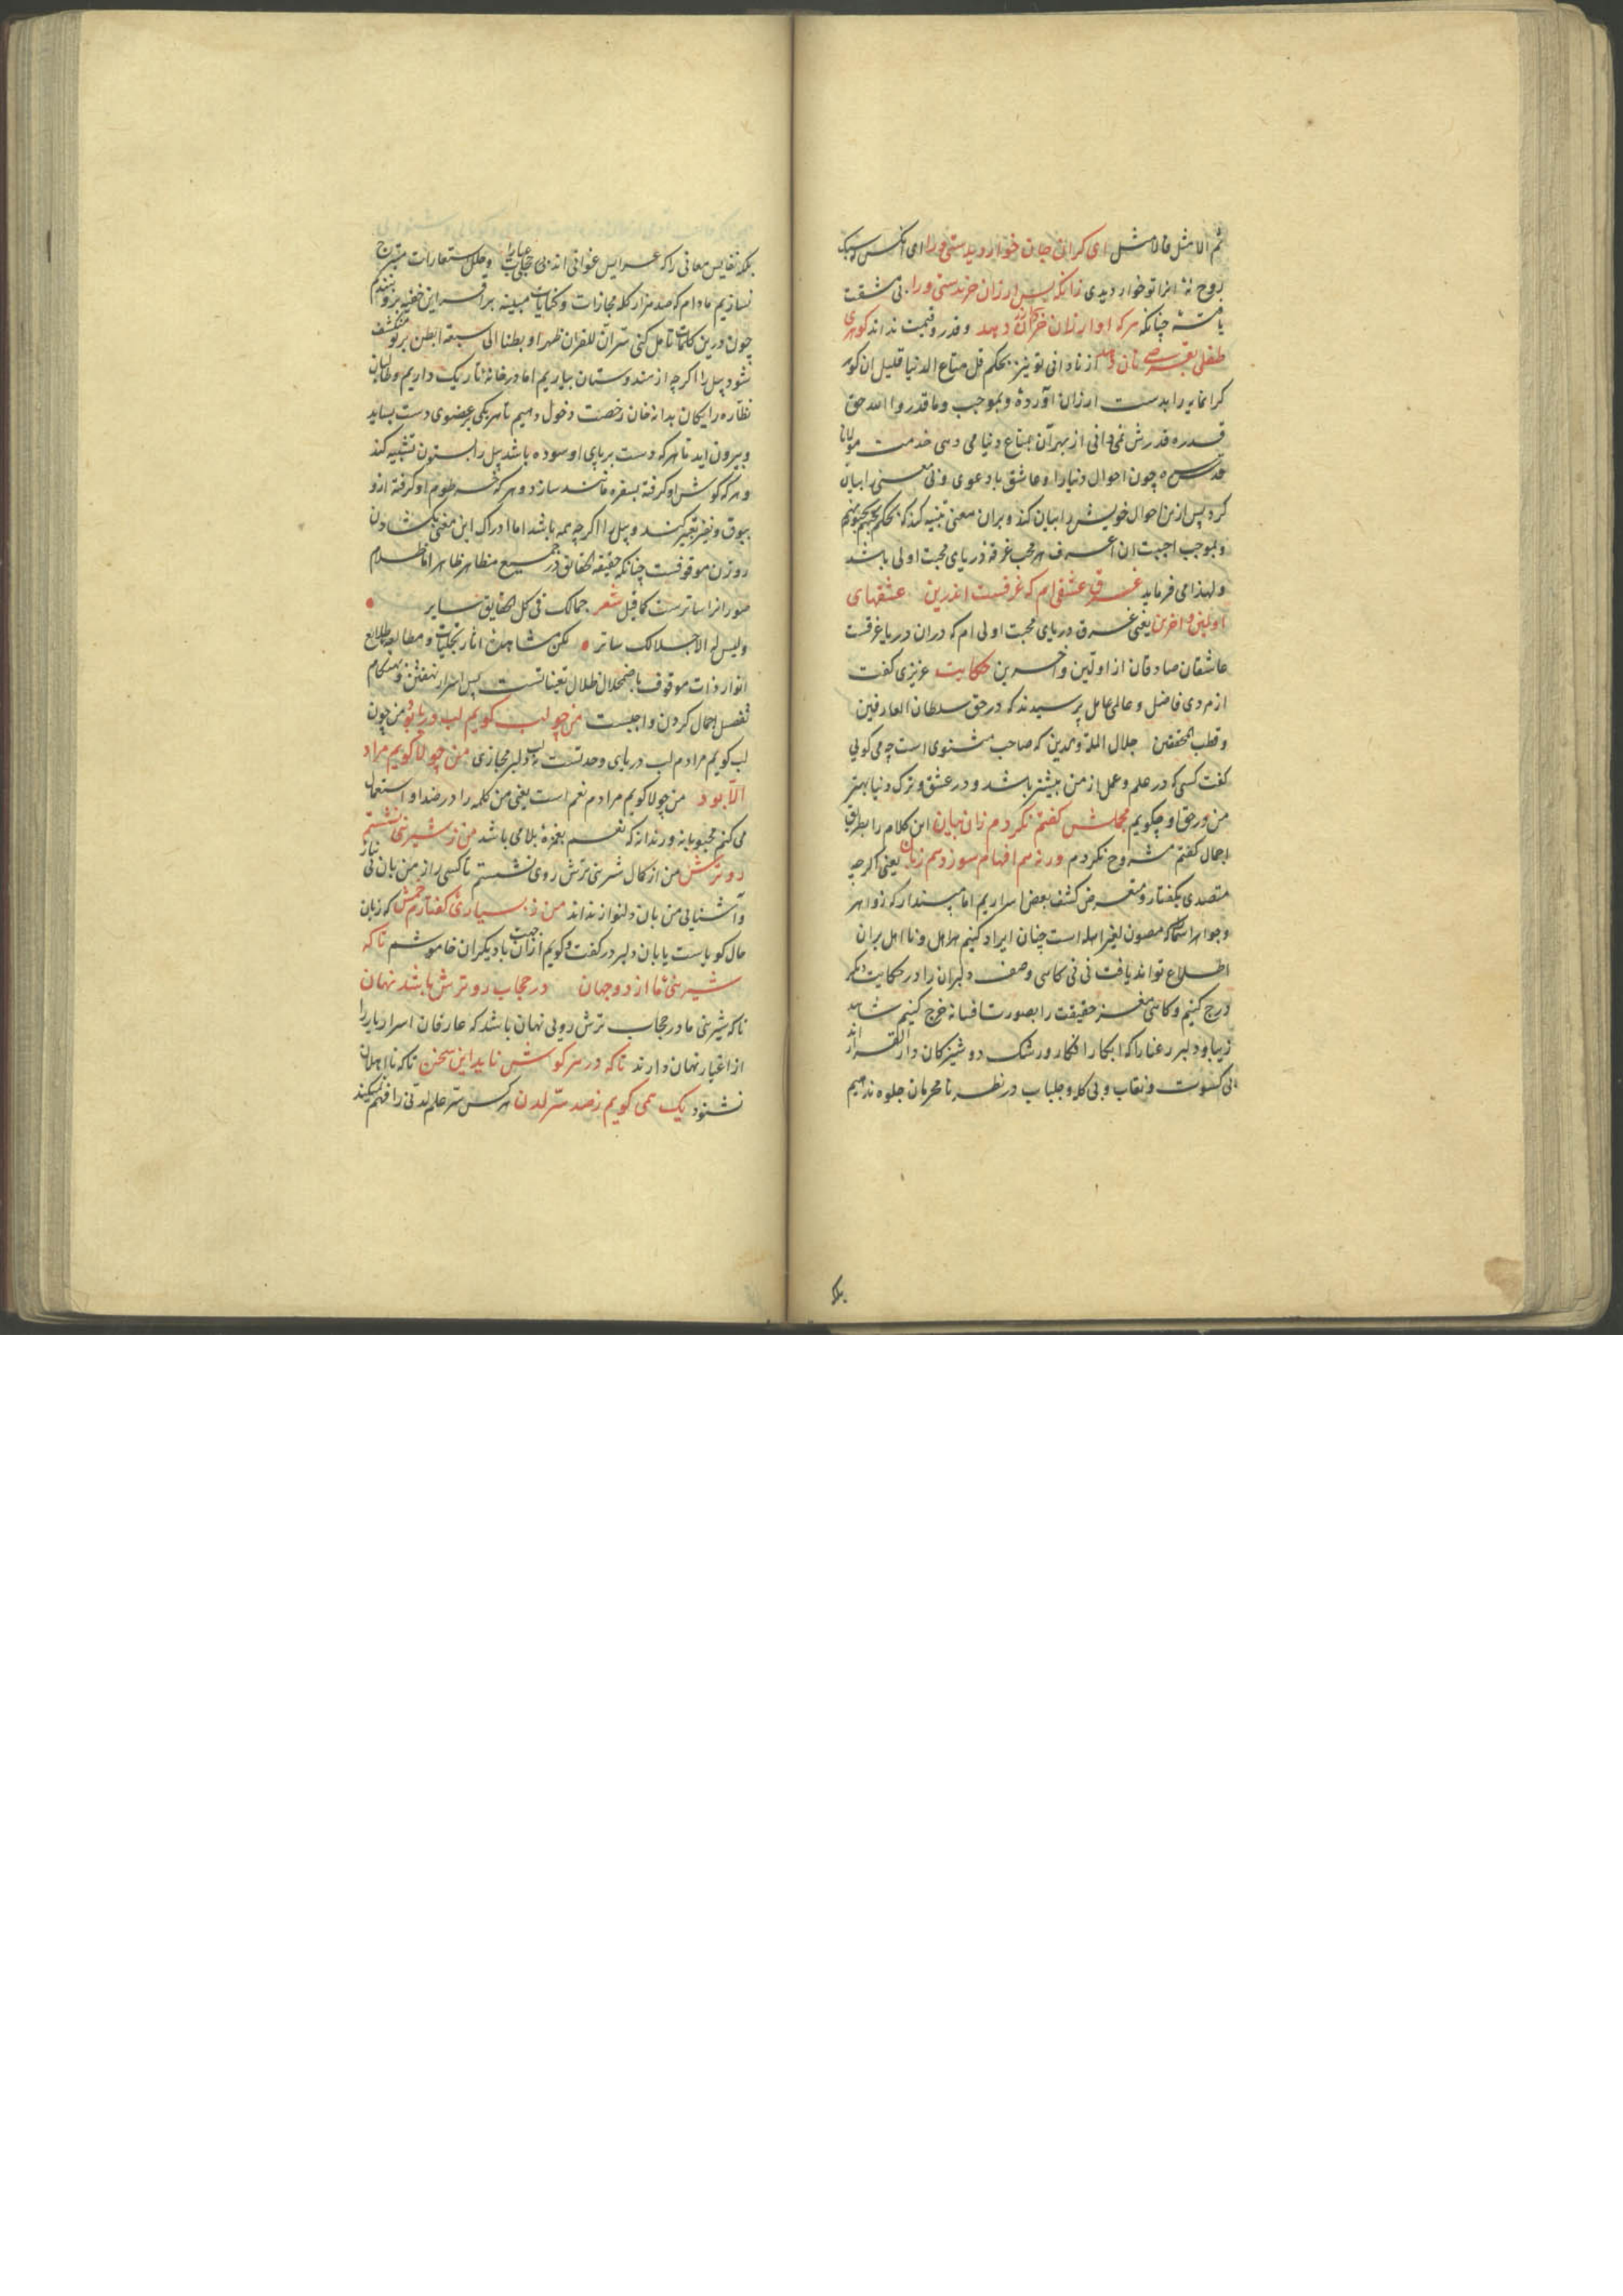 ثم الامثل فالامثل ای کرانی جان خوار دیدستی مرا ای آنکس سبک
روح نه ابراتو خوار دیدی زانکه بس ارزان خریدستی ورا بی مشقت
یافته چنانکه هر که او ارزان خرد ارزان دهد و قدر و قیمت نداند کوهری
طفلی بقرصی نان دهد از نادانی تو نیز بحکم قل متاع الدنیا قلیل ان کوهر
کرانمایه را بدست ارزان آورده و بموجب وما قدروا الله حق
قدره قدرش نمی دانی از بهر آن بمتاع دنیا می دهی خدمت مولانا
قدس سره چون احوال دنیا را و عاشق با دعوی و بی معنی را بیان
کرد پس ازین احوال خویش را بیان کند و بران معنی تنبیه کند که بحکم یحبهم و یحبونهم
و بموجب احببت ان اعرف هر محب غرقه دریای محبت اولی باشد
و لهذا می فرماید غرق عشقی ام که غرقست اندرین عشقهای
اولین و آخرین یعنی غرق دریای محبت اولی ام که دران دریا غرقست
عاشقان صادقان از اولین و آخرین حکایت عزیزی کفت
از مردی فاضل و عالمی عامل پرسیدند که در حق سلطان العارفین
و قطب المحققین جلال الملة والدین که صاحب مثنوی است چه می کویی
کفت کسی که در علم و عمل از من بیشتر باشد و در عشق و ترک دنیا بهتر
من در حق او چکویم مجملش کفتم نکردم زان بیان این کلام را بطریق
اجمال کفتم مشروح نکردم ورنه هم افهام سوزد هم زبان یعنی اکر چه
متصدی بکفتار و متعرض کشف بعض اسراریم اما مپندار که زواهر
و جواهر اسما که مصون لغیر اهله است چنان ایراد کنیم که اهل و نا اهل بران
اطلاع تواند یافت نی نی کاهی وصف دلبران را در حکایت دیکر
درج کنیم و کاهی مغز حقیقت را بصورت افسانه خرج کنیم شاهد
زیبا و دلبر رعنا را که ابکار افکار و رشک دوشیزکان دار القرار اند
بی کسوت و نقاب و بی کله و جلباب در نظر نامحرمان جلوه ندهیم
بلکه
بلکه نفایس معانی را که عرایس غوانی اند بی حجاب عبارات و حلل استعارات متبرج
نسازیم مادام که صد هزار کله مجازات و کنایات مبینه برافراز این خفیه فرو بندیم
چون درین کلمات تامل کنی سر آن للقران ظهرا و بطنا الی سبعة ابطن بر تو منکشف
شود پیل را اکر چه از هندوستان بیاریم اما در خانه تاریک داریم و طالبان
نظاره رایکان بدانخان رخصت دخول دهیم تا هر یکی بر عضوی دست بساید
و بیرون آید تا هر که دست بر پای او سوده باشد پیل را بستون تشبیه کند
و هر که کوش او کرفته بسفره مانند سازد و هر که خرطوم او کرفته ازو
ببوق و نفیر تعبیر کند و پیل را اکر چه همه باشد اما ادراک این معنی بکشادن
روزن موقوفست چنانکه حقیقة الحقایق در جمیع مظاهر ظاهر اما ظلام
صور انرا ساترست کما قیل شعر جمالک فی کل الحقایق سایر
ولیس له الا جلالک ساتر لکن مشاهده آثار تجلیات و مطالعه طلایع
انوار ذات موقوف باضمحلال ظلال تعیناتست پس اسرار نهفتن و بهنکام
تفصیل اجمال کردن واجبست من چو لب کویم لب دریا بود من چون
لب کویم مرادم لب دریای وحدتست نه لب دلبر مجازی من چو لا کویم مراد
الا بود من چو لا کویم مرادم نعم است یعنی من کلمه را در ضد او استعمال
می کنم محبوبانه و رندانه که نعم بغمزه بلا می باشد من ز شیرینی نشستم
رو ترش من از کمال شیرینی ترش روی نشستم تا کسی راز من بان بی نیاز
و آشنایی من بان دلنواز نداند من ز بسیاری کفتارم خمش که زبان
حال کویاست یا بان دلبر در کفت و کویم از ان جهت با دیکران خاموشم تا که
شیرینی ما از دو جهان در حجاب رو ترش باشد نهان
تا که شیرینی ما در حجاب ترش رویی نهان باشد که عارفان اسرار یار را
از اغیار نهان دارند تا که در هر کوش ناید این سخن تا که نا اهلان
نشنود یک همی کویم ز صد سر لدن هر کس سر علم لدنی را فهم نمیکند